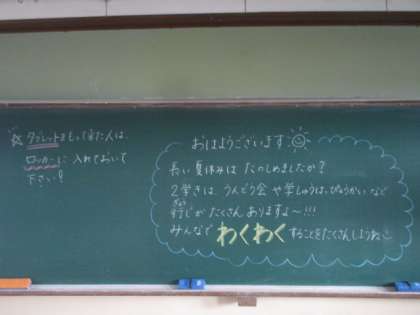 ☆タブレットをもって来た人は、
ロッカーに入れておいて
下さい!
おはようございます
長い夏休みは たのしめましたか?
2学きは、うんどう会や学しゅうはっぴょうかいなど
行じがたくさんありますよ〜!!!
ぎょう
みんなで わくわく することをたくさんしようね